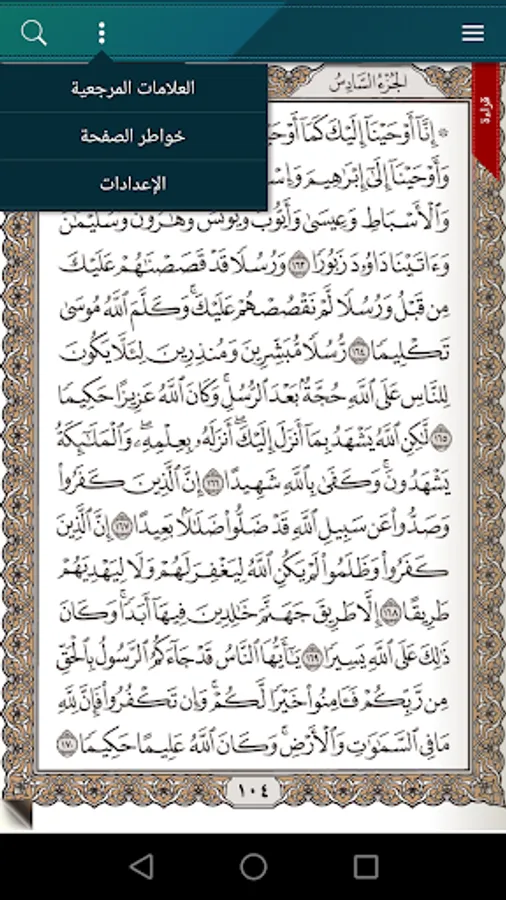 العلامات المرجعية
خواطر الصفحة
الإعدادات
الجزء السادس
قراءة
۞ إِنَّآ أَوْحَيْنَآ إِلَيْكَ كَمَآ أَوْحَيْ
وَأَوْحَيْنَآ إِلَىٰٓ إِبْرَٰهِيمَ وَإِسْ
وَٱلْأَسْبَاطِ وَعِيسَىٰ وَأَيُّوبَ وَيُونُسَ وَهَٰرُونَ وَسُلَيْمَٰنَ
وَءَاتَيْنَا دَاوُۥدَ زَبُورًا ١٦٣ وَرُسُلًا قَدْ قَصَصْنَٰهُمْ عَلَيْكَ
مِن قَبْلُ وَرُسُلًا لَّمْ نَقْصُصْهُمْ عَلَيْكَ ۚ وَكَلَّمَ ٱللَّهُ مُوسَىٰ
تَكْلِيمًا ١٦٤ رُّسُلًا مُّبَشِّرِينَ وَمُنذِرِينَ لِئَلَّا يَكُونَ
لِلنَّاسِ عَلَى ٱللَّهِ حُجَّةٌۢ بَعْدَ ٱلرُّسُلِ ۚ وَكَانَ ٱللَّهُ عَزِيزًا حَكِيمًا
١٦٥ لَّٰكِنِ ٱللَّهُ يَشْهَدُ بِمَآ أَنزَلَ إِلَيْكَ ۖ أَنزَلَهُۥ بِعِلْمِهِۦ ۖ وَٱلْمَلَٰٓئِكَةُ
يَشْهَدُونَ ۚ وَكَفَىٰ بِٱللَّهِ شَهِيدًا ١٦٦ إِنَّ ٱلَّذِينَ كَفَرُوا۟
وَصَدُّوا۟ عَن سَبِيلِ ٱللَّهِ قَدْ ضَلُّوا۟ ضَلَٰلًۢا بَعِيدًا ١٦٧ إِنَّ ٱلَّذِينَ
كَفَرُوا۟ وَظَلَمُوا۟ لَمْ يَكُنِ ٱللَّهُ لِيَغْفِرَ لَهُمْ وَلَا لِيَهْدِيَهُمْ
طَرِيقًا ١٦٨ إِلَّا طَرِيقَ جَهَنَّمَ خَٰلِدِينَ فِيهَآ أَبَدًا ۚ وَكَانَ
ذَٰلِكَ عَلَى ٱللَّهِ يَسِيرًا ١٦٩ يَٰٓأَيُّهَا ٱلنَّاسُ قَدْ جَآءَكُمُ ٱلرَّسُولُ بِٱلْحَقِّ
مِن رَّبِّكُمْ فَـَٔامِنُوا۟ خَيْرًا لَّكُمْ ۚ وَإِن تَكْفُرُوا۟ فَإِنَّ لِلَّهِ
مَا فِى ٱلسَّمَٰوَٰتِ وَٱلْأَرْضِ ۚ وَكَانَ ٱللَّهُ عَلِيمًا حَكِيمًا ١٧٠
١٠٤